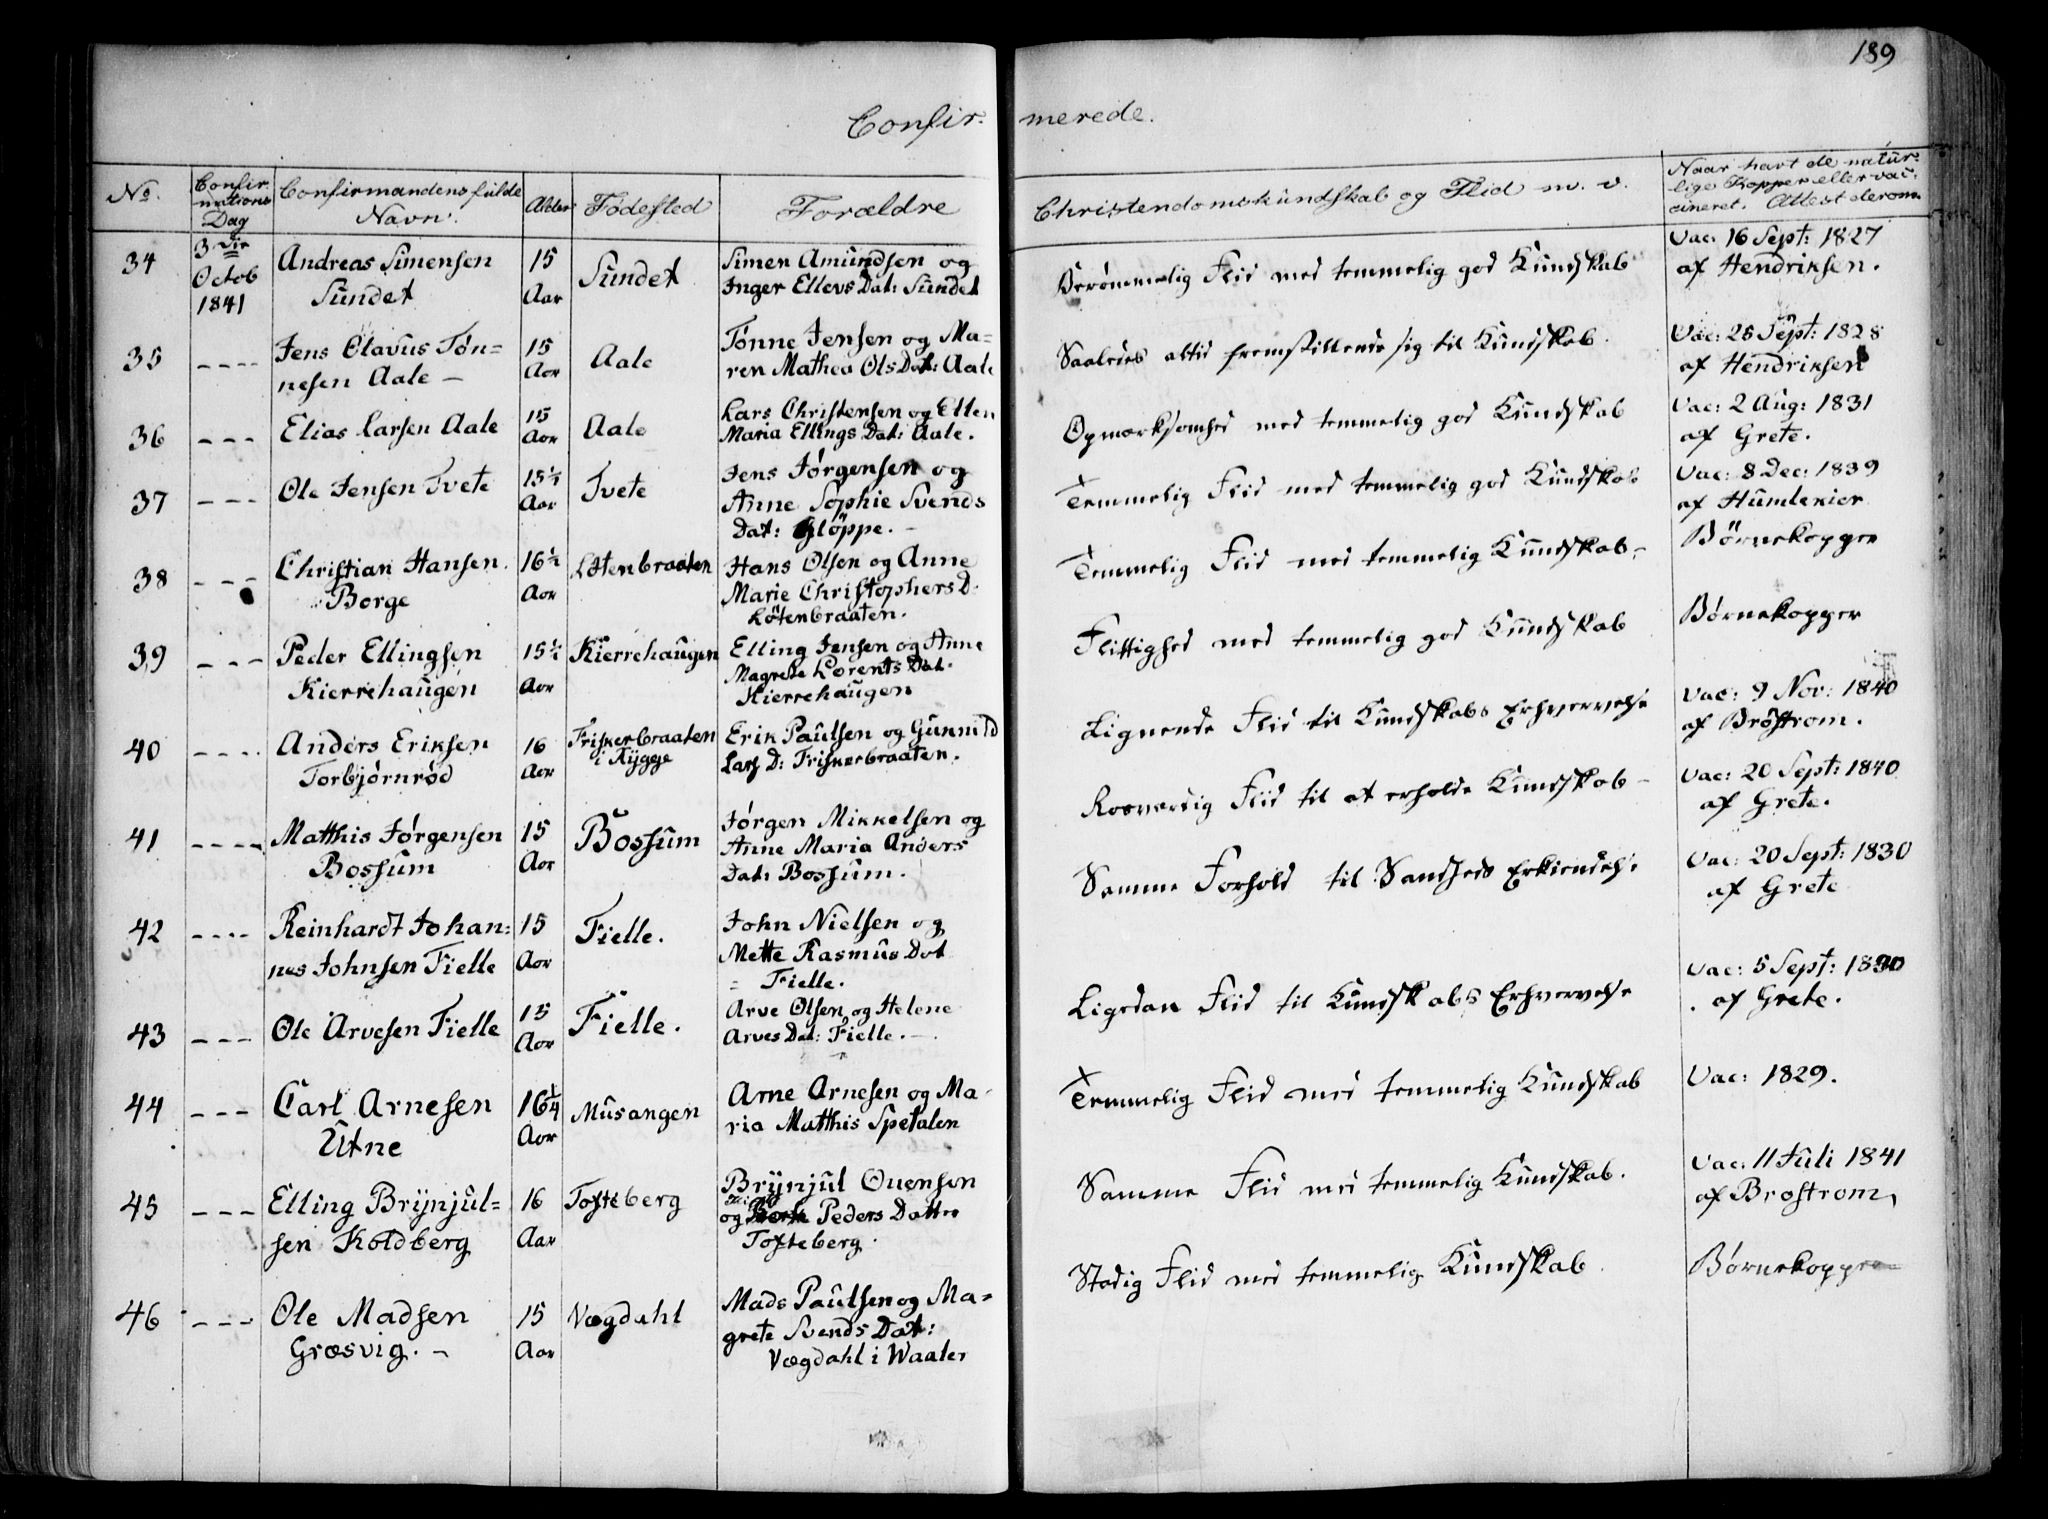 189
Confir- merede.
No.
Confir-
mations
Dag
Confirmandens fulde
Navn.
Alder
Fødested
Forældre
Christendomskundskab og Flid m. v.
Naar havt de natur-
lige Kopper eller vac-
cineret. Attest derom
34
3die
Octob
1841
Andreas Simensen
Sundet
15
Aar
Sundet
Simen Amundsen og
Inger Ellevs Dat: Sundet
Berömmelig Flid med temmelig god Kundskab
Vac: 16 Sept: 1827
af Hendriksen.
35
----
Jens Olavus Tøn=
nesen Aale —
15
Aar
Aale
Tønne Jensen og Ma-
ren Mathea Ols Dat: Aale
Saaledes altid fremstillende sig til Kundskab.
Vac: 25 Sept: 1828
af Hendriksen
36
---
Elias Larsen Aale
15
Aar
Aale
Lars Christensen og Ellen
Maria Ellings Dat: Aale.
Opmærksomhed med temmelig god Kundskab
Vac: 2 Aug: 1831
af Grete.
37
---
Ole Jensen Tvete
15½
Aar
Tvete
Jens Jørgensen og
Anne Sophie Svends
Dat: Glöppe. -
Temmelig Flid med temmelig god Kundskab
Vac: 8 Dec: 1839
af Humlekier
38
---
Christian Hansen.
Borge
16½
Aar
Løtenbraaten
Hans Olsen og Anne
Marie Christophers D:
Løtenbraaten.
Temmelig Flid med temmelig Kundskab-
Børnekopper
39
---
Peder Ellingsen
Kierrehaugen
15½
Aar
Kierrehaugen
Elling Jensen og Anne
Magrete Lorents Dat.
Kierrehaugen
Flittighed med temmelig god Kundskab
Børnekopper
40
----
Anders Eriksen
Torbjørnrød
16
Aar
Friskerbraaten
i Rygge
Erik Paulsen og Gunnild
Lars D: Friskerbraaten.
Lignende Flid til Kundskabs Erhvervelse
Vac: 9 Nov: 1840
af Brøstrom.
41
----
Matthis Jørgensen
Bossum
15
Aar
Bossum
Jørgen Mikkelsen og
Anne Maria Anders
Dat: Bossum.
Rosværdig Flid til at erholde Kundskab -
Vac: 20 Sept: 1840
af Grete.
42
----
Reinhardt Johan=
nes Johnsen Fielle
15
Aar
Fielle.
John Nielsen og
Mette Rasmus Dat
= Fielle.
Samme Forhold til Sandheds Erkiendelse
Vac: 20 Sept: 1830
af Grete
43
---
Ole Arvesen Fielle
15
Aar
Fielle.
Arve Olsen og Helene
Arves Dat: Fielle. -
Ligedan Flid til Kundskabs Erhvervelse
Vac: 5 Sept: 1830
. af Grete.
44
---
Carl Arnesen
Utne
16¼
Aar
Musangen
Arne Arnesen og Ma-
ria Matthis Spetalen
Temmelig Flid med temmelig Kundskab
Vac: 1829.
45
---
Elling Brynjul=
sen Koldberg
16
Aar
Tofteberg
Brynjul Ouensen
og Peders Datter
Tofteberg.
Samme Flid med temmelig Kundskab.
Vac: 11 Juli 1841
af Brostrom,
46
---
Ole Madsen
Græsvig. -
15
Aar
Vægdahl
Mads Paulsen og Ma=
grete Svends Dat:
Vægdahl i Waaler
Stadig Flid med temmelig Kundskab.
Børnekopper